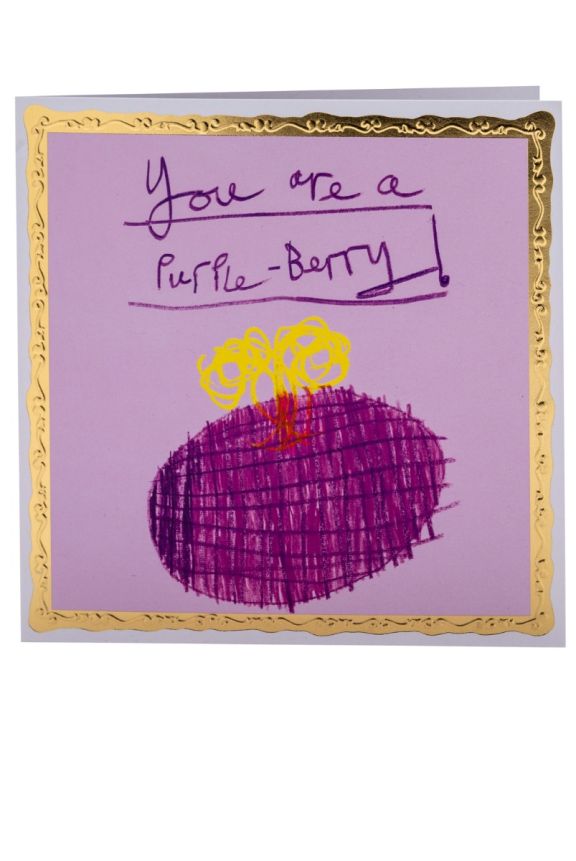 You are a
Purple-Berry!